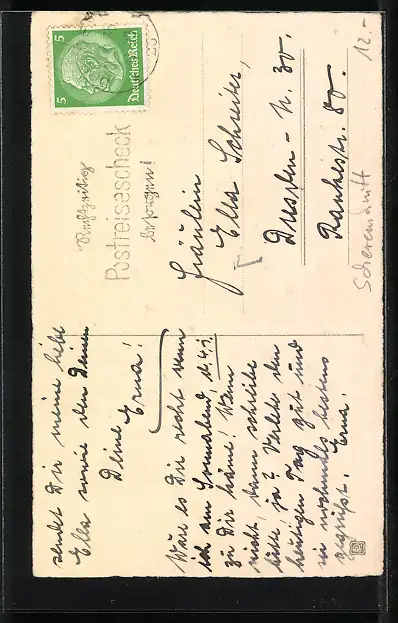 sendet Dir meine liebe
Ella sowie den Deinen
Deine Erna!
Wäre es Dir recht wenn
ich am Sonnabend, d. 4.
zu Dir käme! Wenn
nicht, dann schreibe
bitte ja? Verlebe den
heutigen Tag gut und
sei nochmals bestens
gegrüßt. Erna.
5 5
Deutsches Reich
Rechtzeitig
Postreisescheck
besorgen!
Fräulein
Ella Schreiter,
Dresden - N. 30.
Rankestr. 80.
Scherenschnitt
12.-